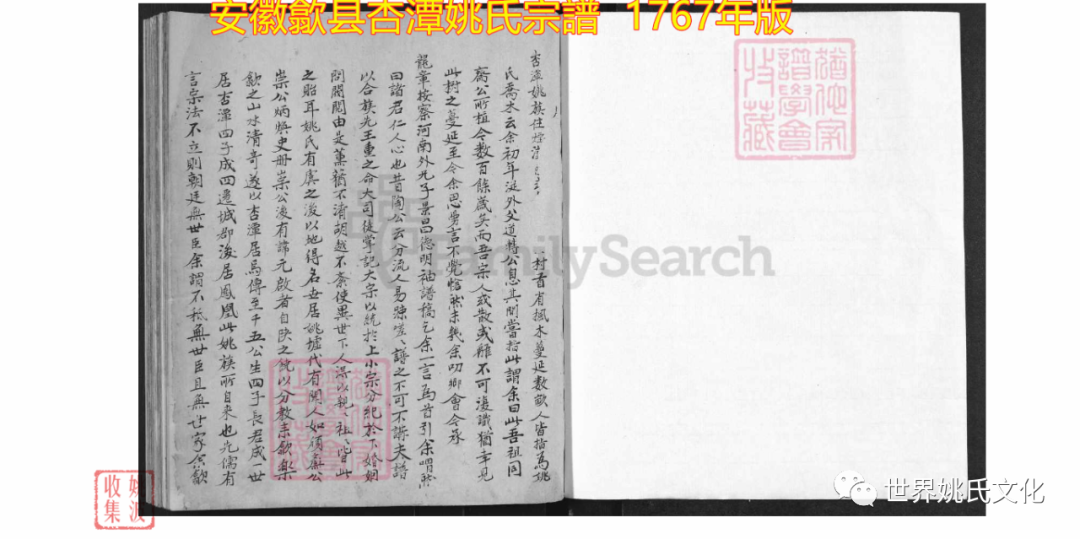 安徽歙县杏潭姚氏宗譜 1767年版
杏潭姚族住
村首有楓木蔓延数畝人皆指為姚
氏喬木云余初年從外父道轉公息其間嘗指此謂余曰此吾祖同
齋公所植令数百餘歲矣而吾宗人或散或離不可復識猶幸見
此樹之蔓延至今余思勇言不覺愴然未幾余叨鄉會令承
龍章按察河南外兄子景昌德明袖譜稿乞余一言為首引余喟然
曰諸君仁人心也昔陶公云分流人易踈嗟嗟譜之不可不講夫譜
以合族先王重之合大司徒掌記大宗以統於上小宗分紀於下婚姻
閥閱由是薰蕕不清胡越不紊使異世下人深以親社
之貽耳姚氏有虞之後以地得名世居姚墟代有聞人如
崇公炳煥史冊崇公後有諱元啟者自陝之統以分教來歙樂
歙之山水清奇遂以杏潭居焉傳至千五公生四子長君成一世
居杏潭四子成四遷城郡後居鳳凰此姚族所自来也先儒有
言宗法不立則朝廷無世臣余謂不
無世臣且無世家余歙
FamilySearch
姚波
收集
世界姚氏文化